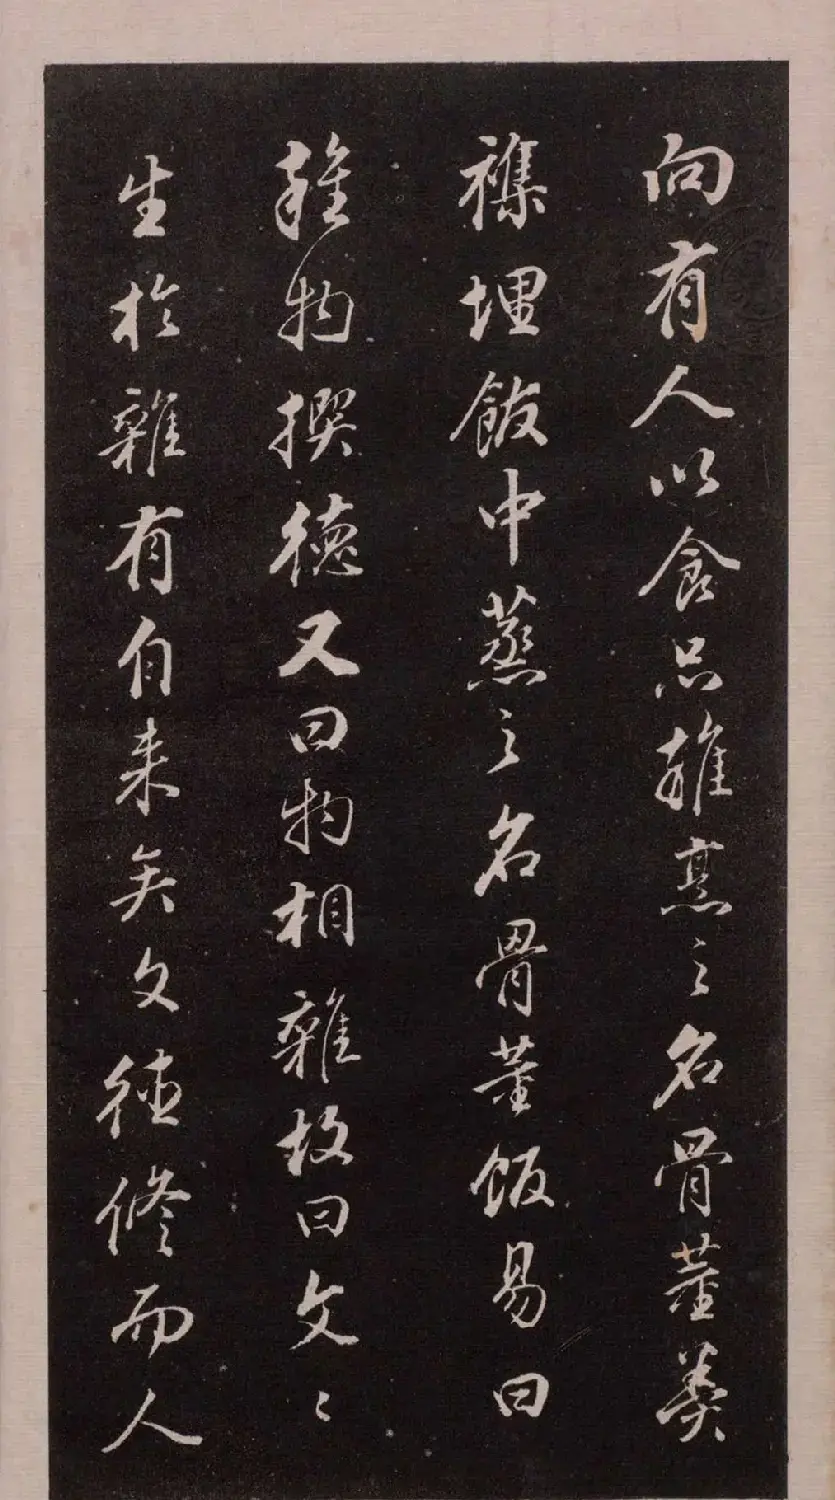 向有人以食品雜烹之名骨董羹
襍埋飯中蒸之名骨董飯易曰
雜物撰德又曰物相雜故曰文文〻
生於雜有自来矣文德修而人